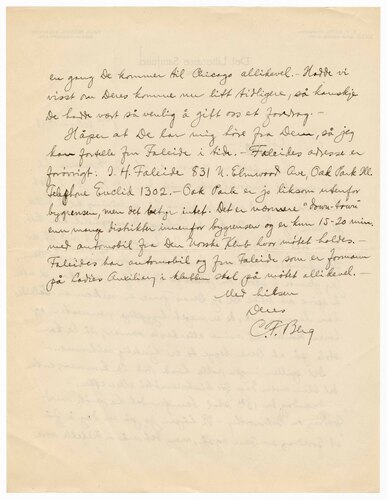 en gang De kommer til Chicago allikevel. – Hadde vi
visst om Deres komme nu litt tidligere, så kanskje
De hadde vært så venlig å gitt oss et foredrag. –
Håper at De lar mig höre fra Dem, så jeg
kan fortelle fru Faleide i tide. – Faleides adresse er
forövrigt: I. H. Faleide 831 N. Elmwood Ave, Oak Park Ill.
Telephone Euclid 1302. – Oak Park er jo liksom utenfor
bygrensen, men det betyr intet. Det er nærmere "down-town"
enn mange distrikter innenfor bygrensen og er kun 15-20 min.
med automobil fra Den Norske Klub hvor mötet holdes. –
Faleides har automobil og fru Faleide som er formann
på Ladies Auxiliary i klubben skal på mötet allikevel. –
Med hilsen
Deres
C. F. Berg